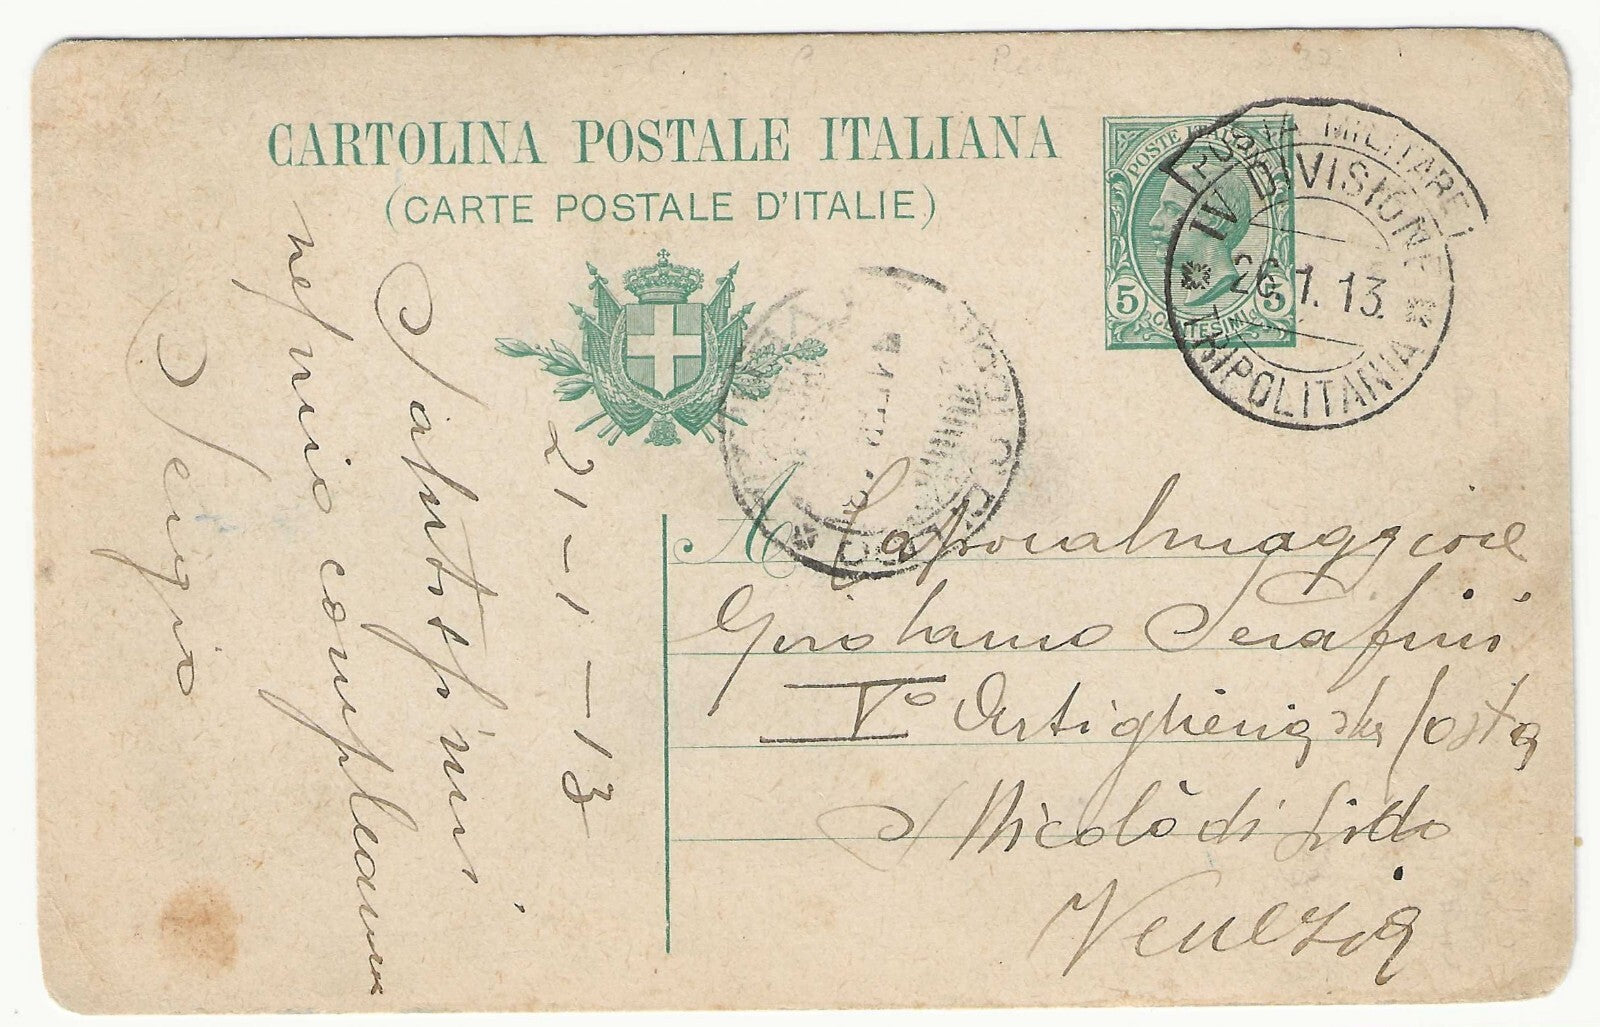 CARTOLINA POSTALE ITALIANA
(CARTE POSTALE D'ITALIE)
POSTE ITALIANE
5 CENTESIMI 5
POSTA MILITARE
IV DIVISIONE
26.1.13.
TRIPOLITANIA
VENEZIA
21-1-13
Salutissimi
nel mio compleanno
Sergio
A Caporalmaggiore
Girolamo Serafini
V° Artiglieria da Costa
S Nicolò di Lido
Venezia